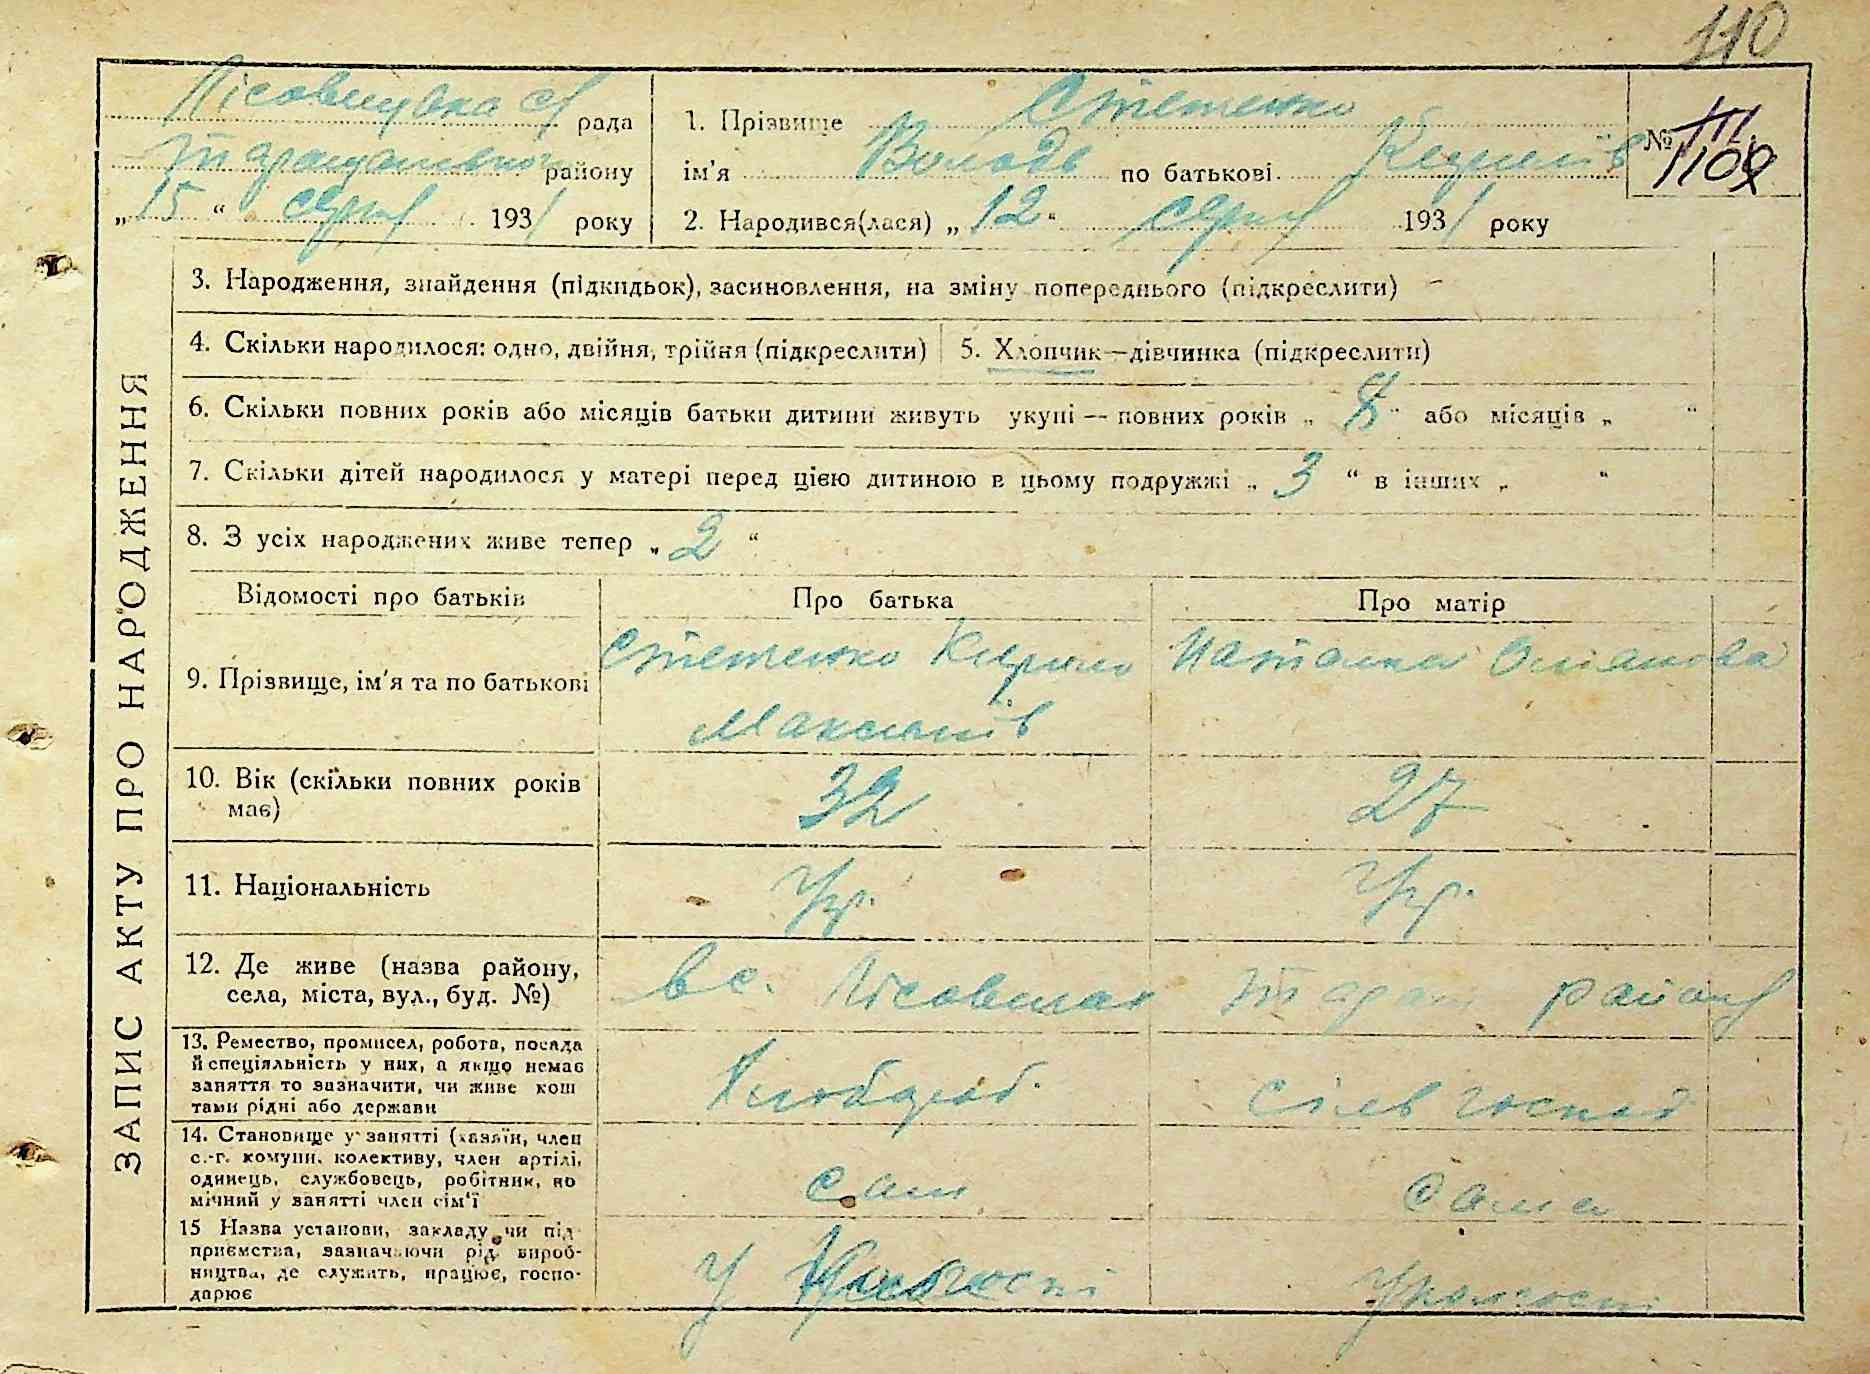 110
Лісовичська с/ рада
Таращанського району
„ 15 “ серп 1931 року
1. Прізвище Стеценко
ім'я Володь по батькові Кирилів
№ 109
2. Народився(лася) „ 12 “ серп 1931 року
ЗАПИС АКТУ ПРО НАРОДЖЕННЯ
3. Народження, знайдення (підкидьок), засиновлення, на зміну попереднього (підкреслити)
4. Скільки народилося: одно, двійня, трійня (підкреслити)
5. Хлопчик—дівчинка (підкреслити)
6. Скільки повних років або місяців батьки дитини живуть укупі — повних років „ 8 “ або місяців „ “
7. Скільки дітей народилося у матері перед цією дитиною в цьому подружжі „ 3 “ в інших „ “
8. З усіх народжених живе тепер „ 2 “
Відомості про батьків
Про батька
Про матір
9. Прізвище, ім'я та по батькові
Стеценко Кирило
Максимів
Наталка
10. Вік (скільки повних років
має)
32
27
11. Національність
Укр.
Укр.
12. Де живе (назва району,
села, міста, вул., буд. №)
в с. Лісовичах Таращ району
13. Ремество, промисел, робота, посада
й спеціяльність у них, а якщо немає
заняття то зазначити, чи живе кош
тами рідні або держави
Хлібороб
Сільгоспод
14. Становище у занятті (хазяїн, член
с.-г. комуни, колективу, член артілі,
одинець, службовець, робітник, по
мічний у занятті член сім'ї
сам
сама
15 Назва установи, закладу чи під
приємства, зазначаючи рід вироб-
ництва, де служить, працює, госпо-
дарює
у